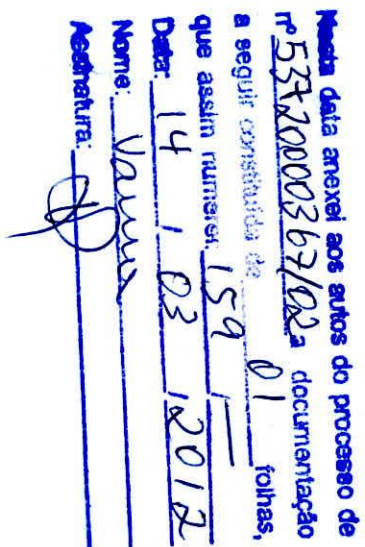 Nesta data anexei aos autos do processo de
nº 53720000367/02 a documentação
a seguir constituída de 01 folhas,
que assim numerei, 159 / —
Data: 14 / 03 / 2012
Nome:
Assinatura: